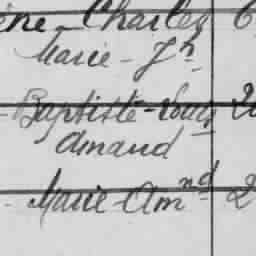 ène-Charles 6
Marie-Jh
-Baptiste-Louis 2
Amand
Marie-Amnd 2